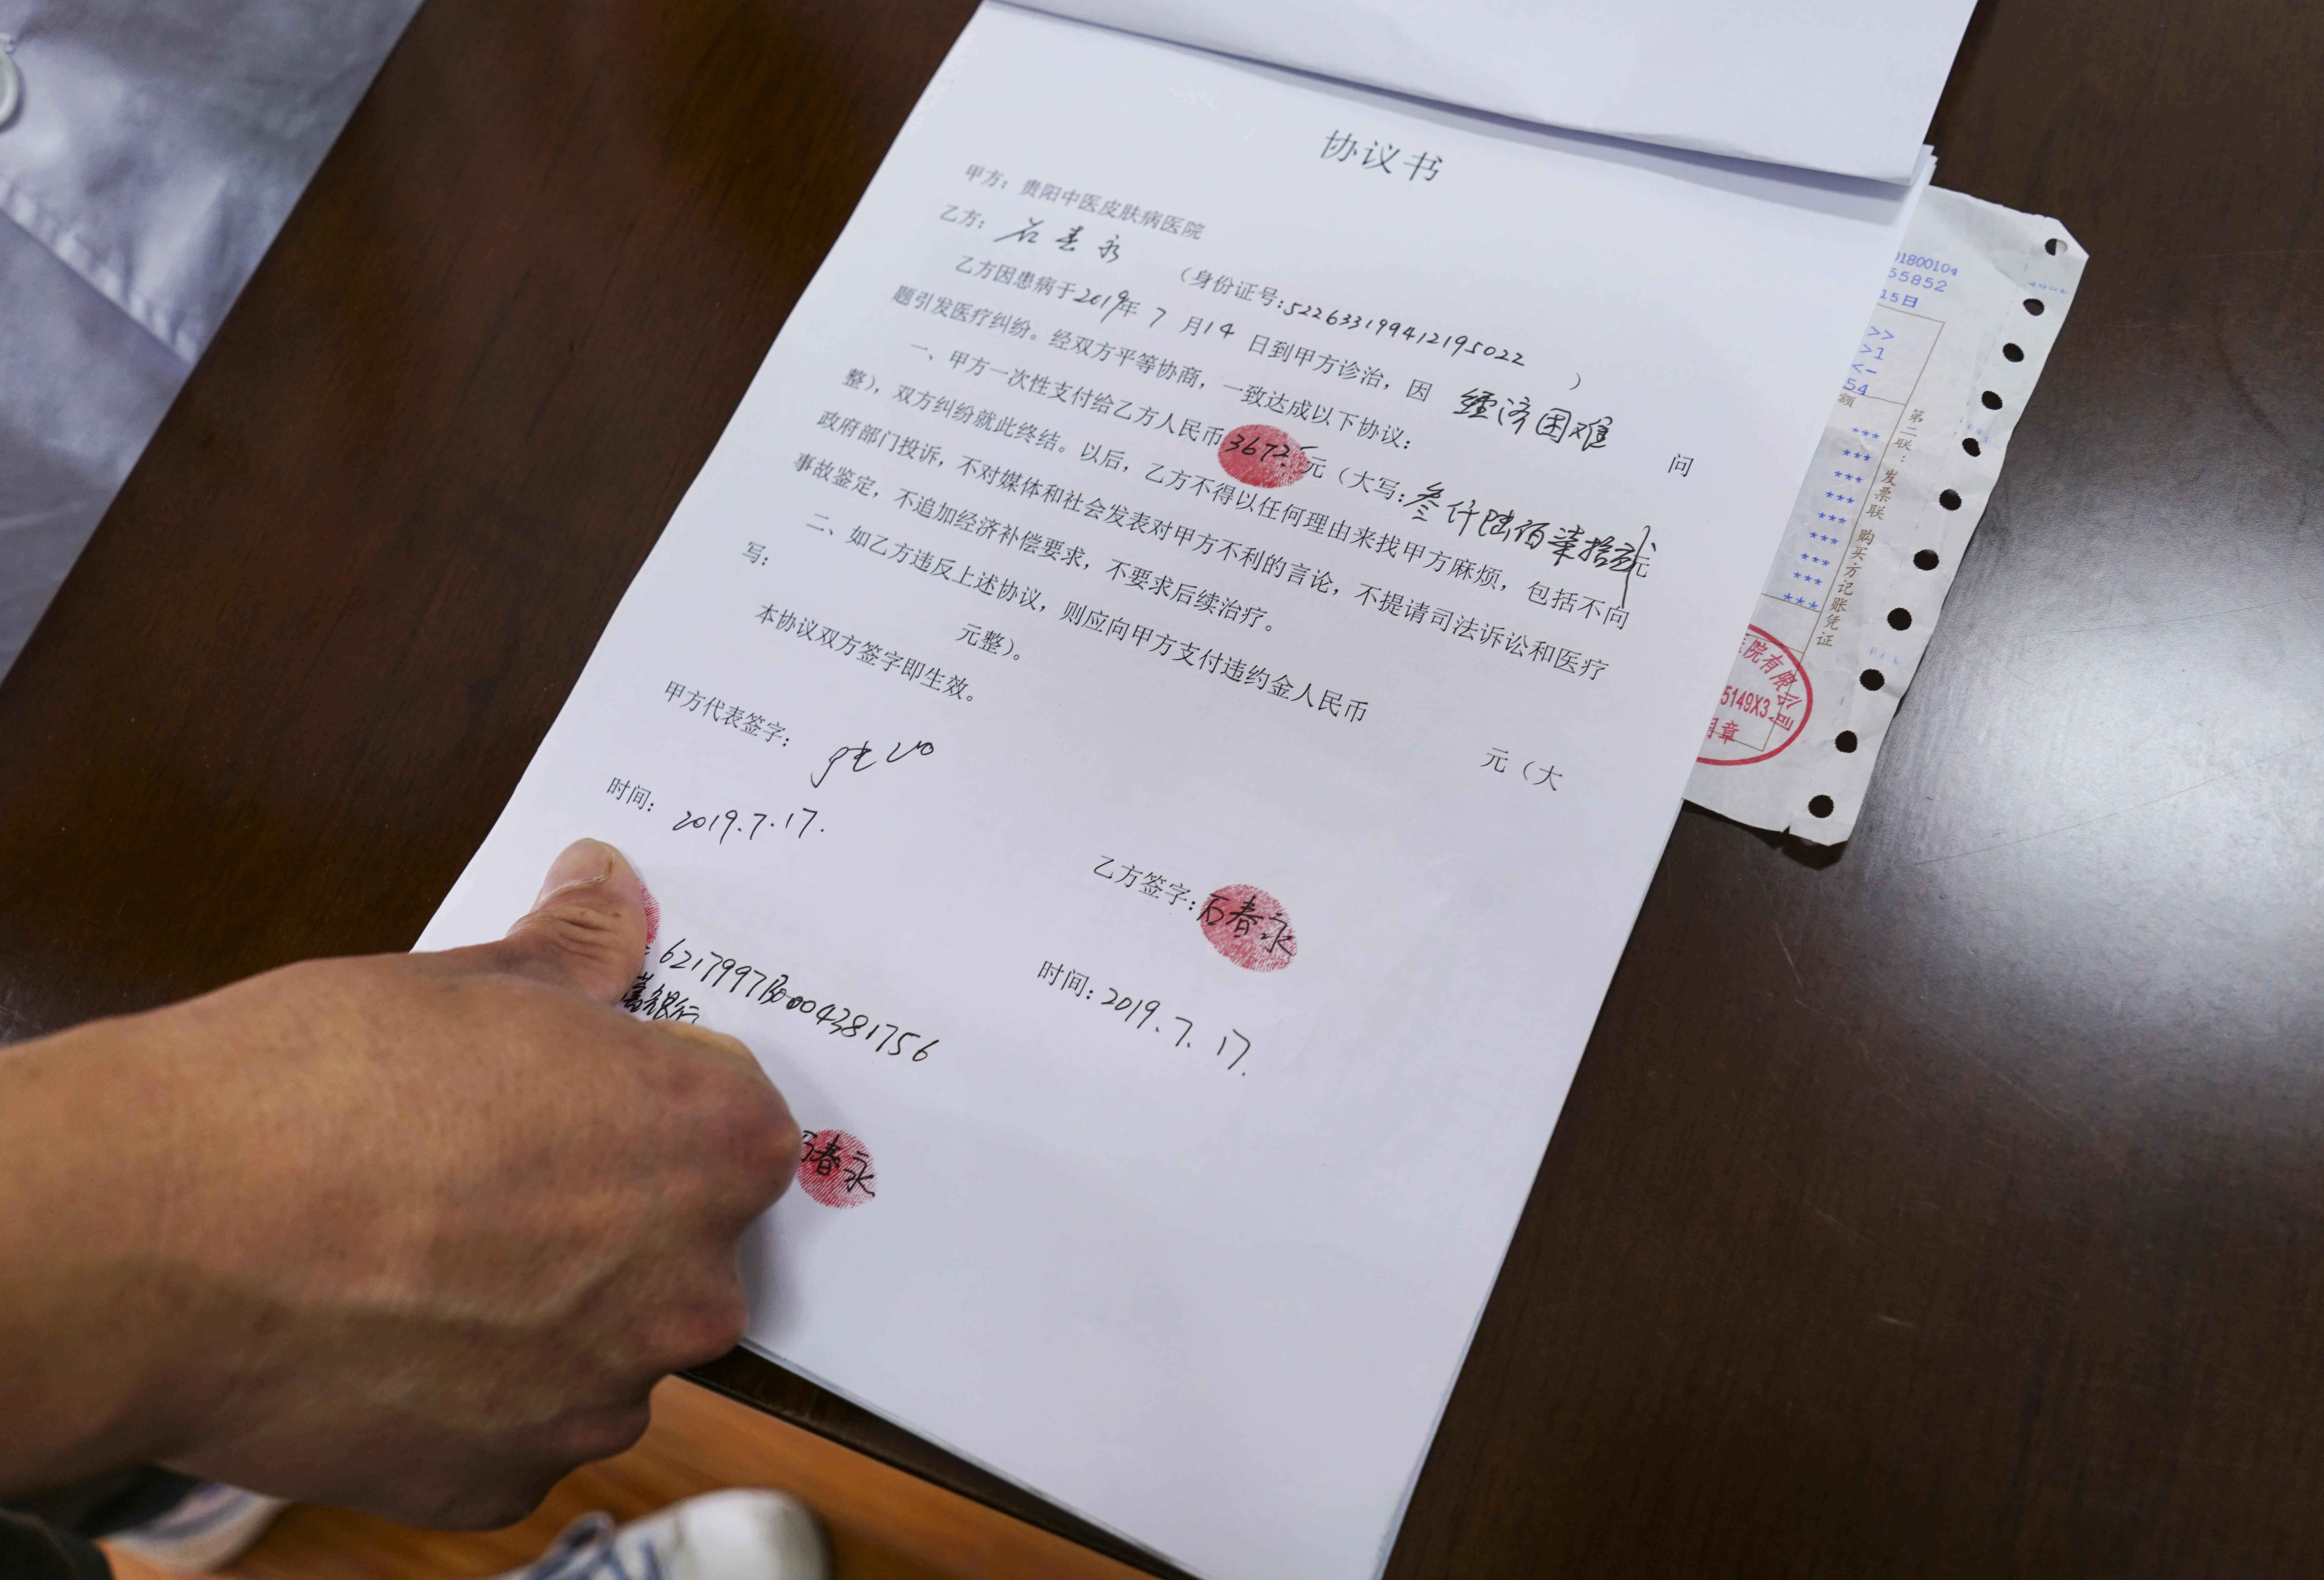 协议书
甲方：贵阳中医皮肤病医院
乙方：石春永 （身份证号：522633199412195022 ）
乙方因患病于2019年 7 月14 日到甲方诊治，因 经济困难 问
题引发医疗纠纷。经双方平等协商，一致达成以下协议：
一、甲方一次性支付给乙方人民币3672元（大写：叁仟陆佰柒拾贰元
整），双方纠纷就此终结。以后，乙方不得以任何理由来找甲方麻烦，包括不向
政府部门投诉，不对媒体和社会发表对甲方不利的言论，不提请司法诉讼和医疗
事故鉴定，不追加经济补偿要求，不要求后续治疗。
二、如乙方违反上述协议，则应向甲方支付违约金人民币 元（大
写： 元整）。
本协议双方签字即生效。
甲方代表签字：
时间：2019.7.17.
乙方签字：石春永
时间：2019.7.17.
银行
石春永
01800104
55852
15日
>>
>1
<-
54
额
***
***
***
***
***
***
***
***
第二联：发票联 购买方记账凭证
医院有限公司
5149X3
用章